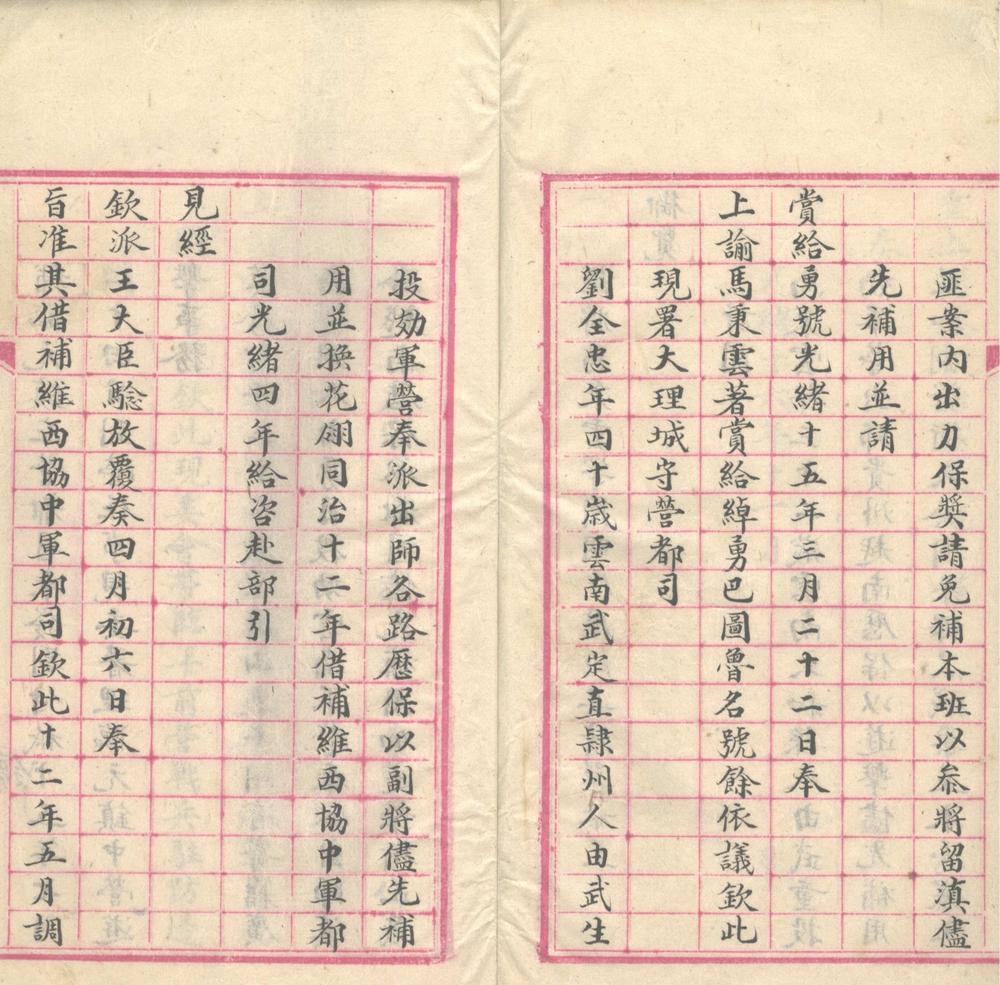 匪案内出力保奬請免補本班以叅將留滇儘
先補用並請
賞給勇號光緒十五年三月二十二日奉
上諭馬秉雲著賞給綽勇巴圖魯名號餘依議欽此
現署大理城守營都司
劉全忠年四十歲雲南武定直隸州人由武生
投効軍營奉派出師各路歷保以副將儘先補
用並換花翎同治十二年借補維西協中軍都
司光緒四年給咨赴部引
見經
欽派王大臣驗放覆奏四月初六日奉
旨准其借補維西協中軍都司欽此十二年五月調